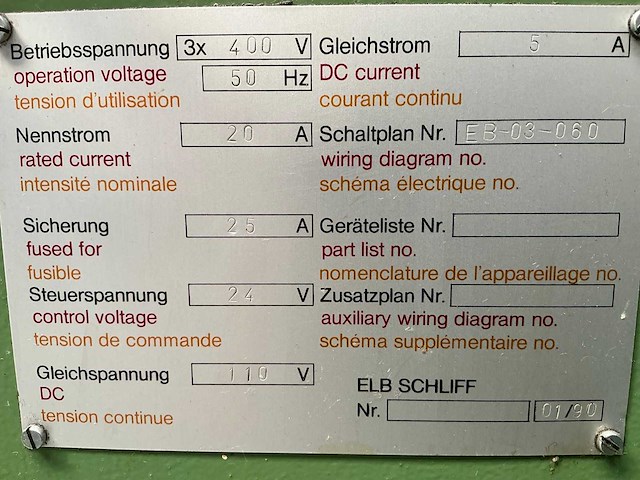 Betriebsspannung 3x 400 V
operation voltage 50 Hz
tension d'utilisation
Nennstrom 20 A
rated current
intensité nominale
Sicherung 25 A
fused for
fusible
Steuerspannung 24 V
control voltage
tension de commande
Gleichspannung 110 V
DC
tension continue
Gleichstrom 5 A
DC current
courant continu
Schaltplan Nr. EB-03-060
wiring diagram no.
schéma électrique no.
Geräteliste Nr.
part list no.
nomenclature de l'appareillage no.
Zusatzplan Nr.
auxiliary wiring diagram no.
schéma supplémentaire no.
ELB SCHLIFF
Nr. 01/90